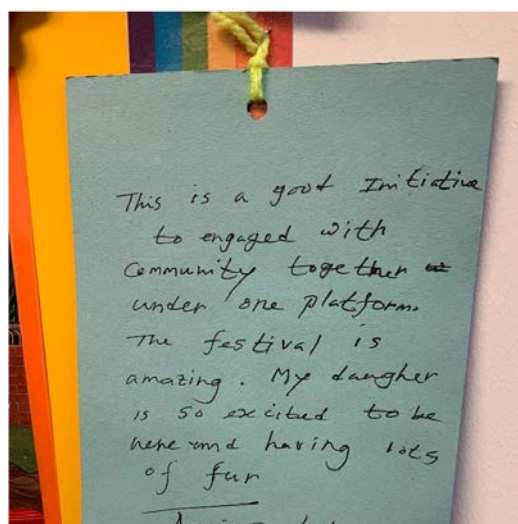 This is a good Initiative
to engaged with
Community together
under one platform.
The festival is
amazing. My daugher
is so excited to be
here and having lots
of fun